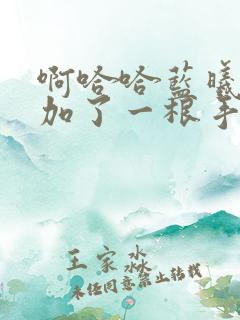 啊哈哈蓝曦
加了一根手
王家淼
未经同意禁止转载